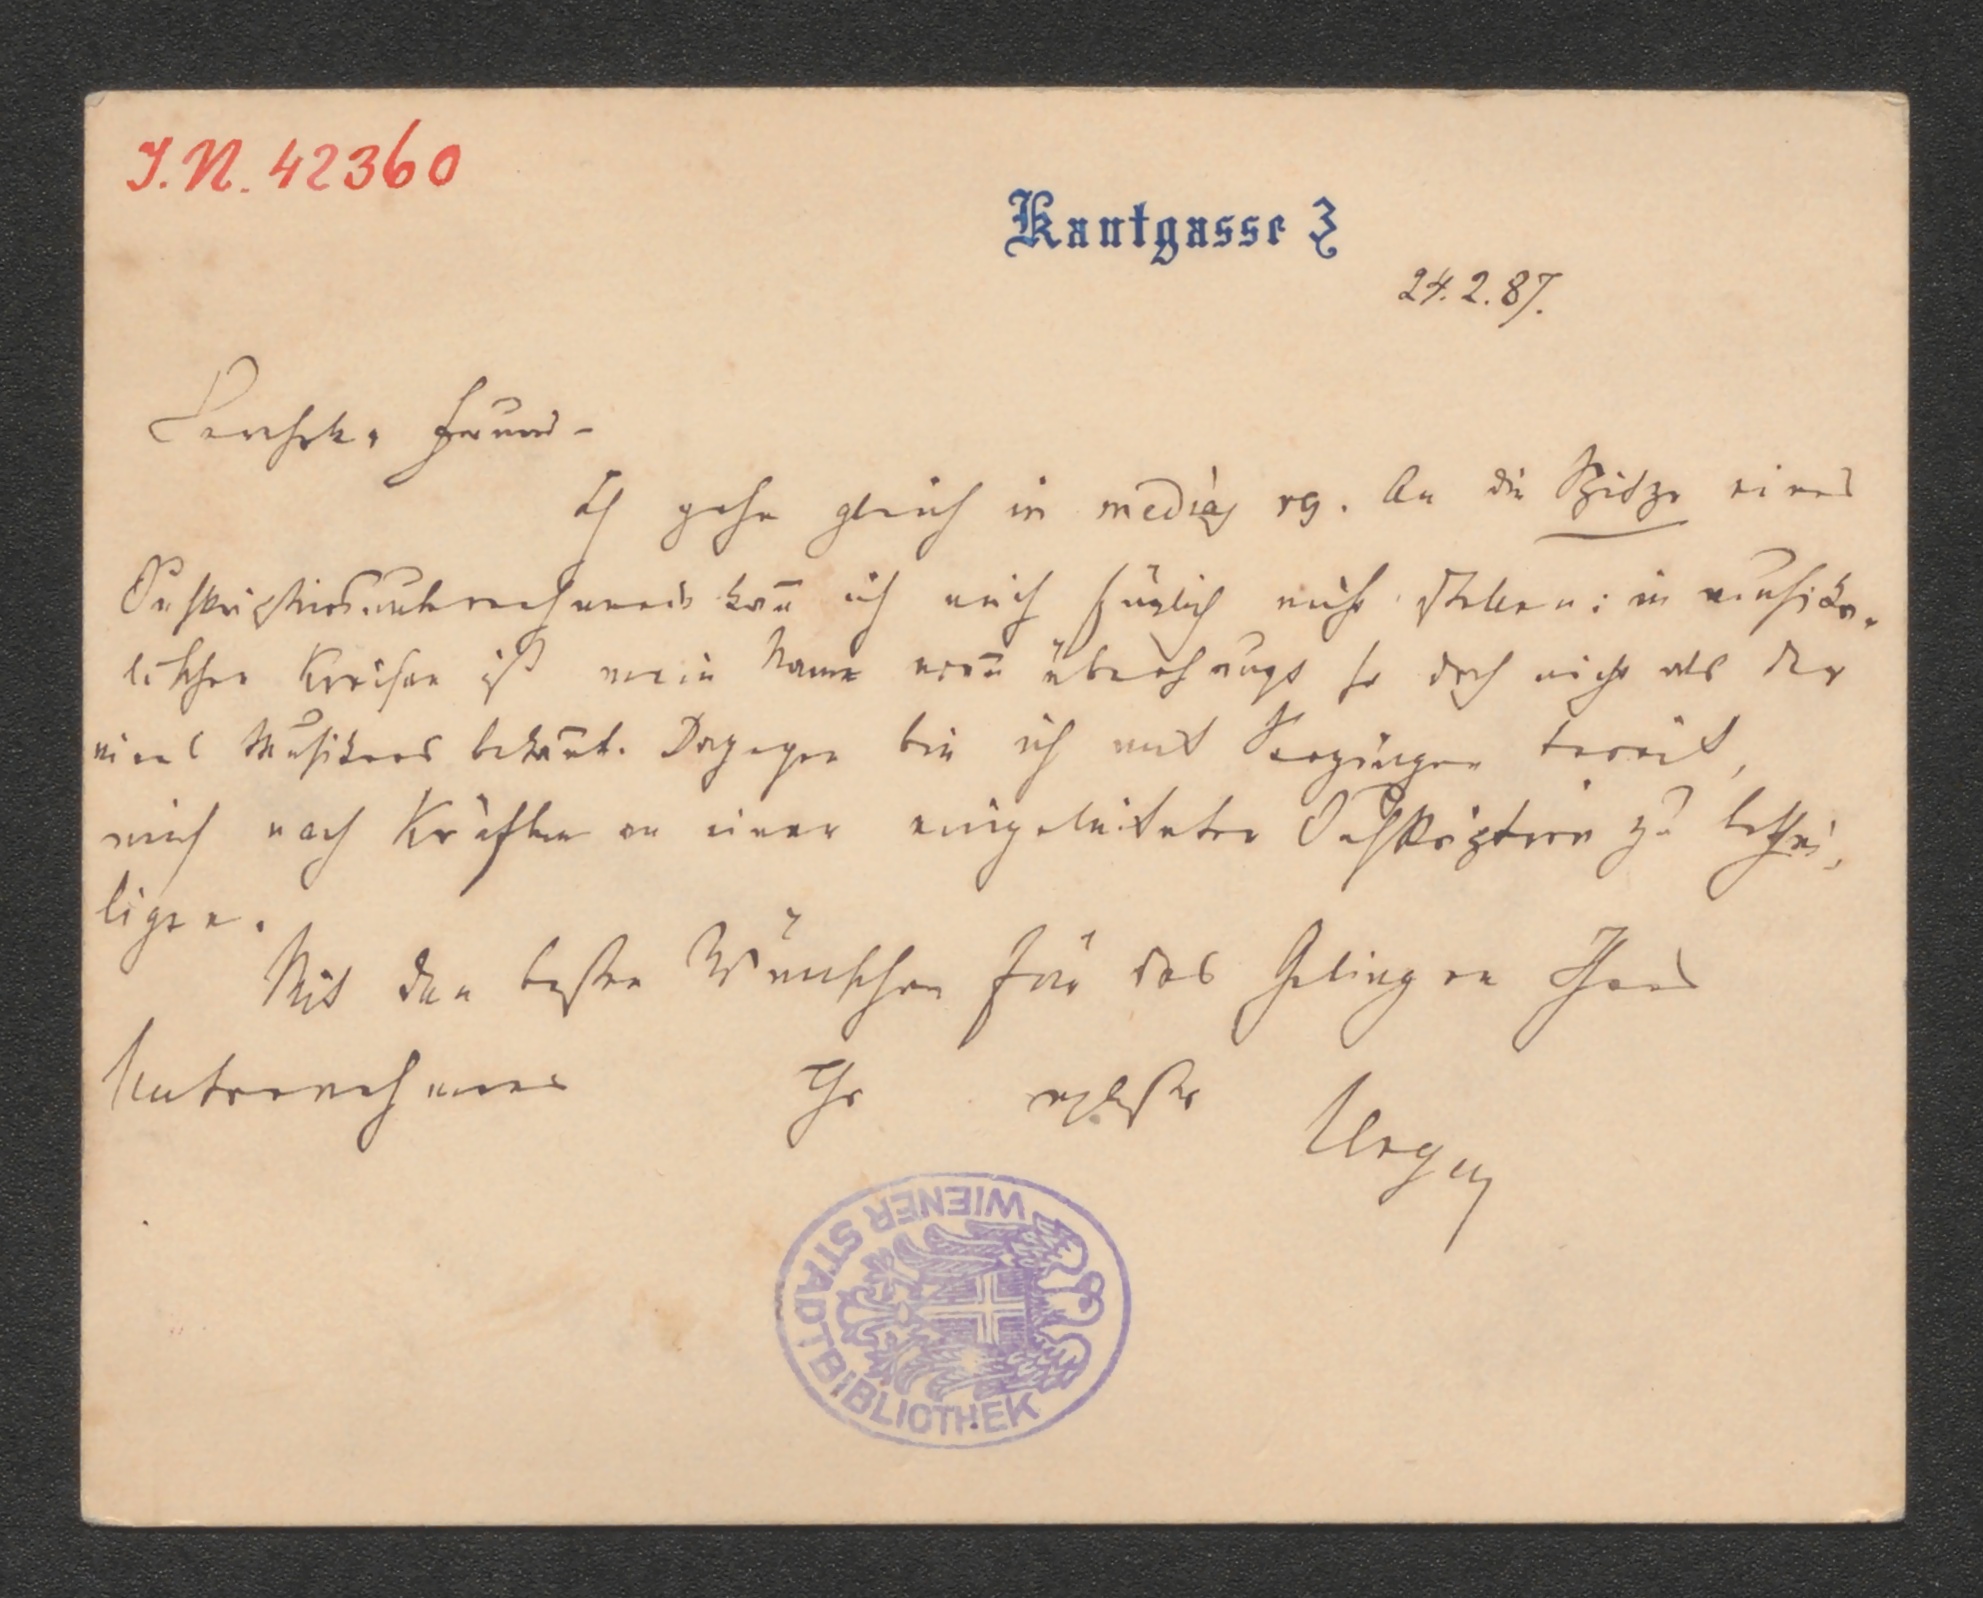 I.N. 42360
Kantgasse 3
24.2.87.
Verehrter Freund –
Ich gehe gleich in medias res. An die Spitze eines
Subskriptionsunternehmens kan̄ ich mich füglich nicht stellen: in musika-
lischen Kreisen ist mein Name wen̄ überhaupt so doch nicht als der
eines Musikers bekan̄t. Dagegen bin ich mit Vergnügen bereit,
mich nach Kräften an einer eingeleiteten Subskription zu bethei-
ligen.
Mit den besten Wünschen für das Gelingen Ihres
Unternehmens Ihr
WIENER STADTBIBLIOTHEK